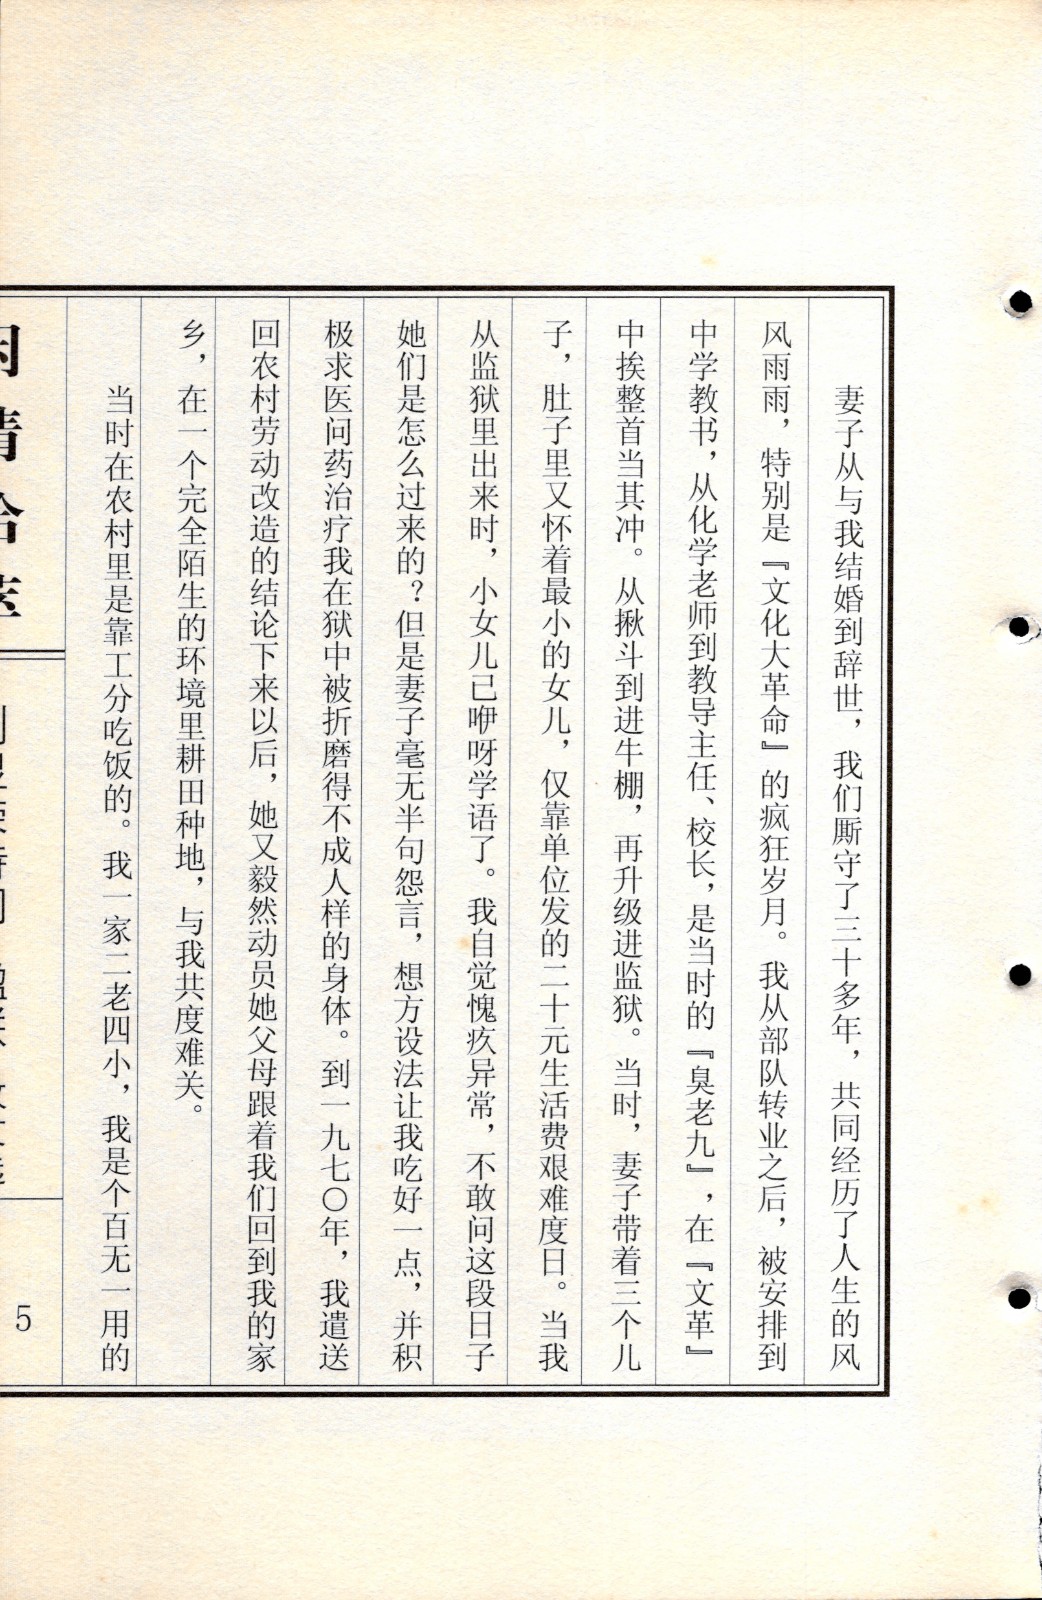 妻子从与我结婚到辞世，我们厮守了三十多年，共同经历了人生的风
风雨雨，特别是『文化大革命』的疯狂岁月。我从部队转业之后，被安排到
中学教书，从化学老师到教导主任、校长，是当时的『臭老九』，在『文革』
中挨整首当其冲。从揪斗到进牛棚，再升级进监狱。当时，妻子带着三个儿
子，肚子里又怀着最小的女儿，仅靠单位发的二十元生活费艰难度日。当我
从监狱里出来时，小女儿已咿呀学语了。我自觉愧疚异常，不敢问这段日子
她们是怎么过来的？但是妻子毫无半句怨言，想方设法让我吃好一点，并积
极求医问药治疗我在狱中被折磨得不成人样的身体。到一九七〇年，我遣送
回农村劳动改造的结论下来以后，她又毅然动员她父母跟着我们回到我的家
乡，在一个完全陌生的环境里耕田种地，与我共度难关。
当时在农村里是靠工分吃饭的。我一家二老四小，我是个百无一用的
5